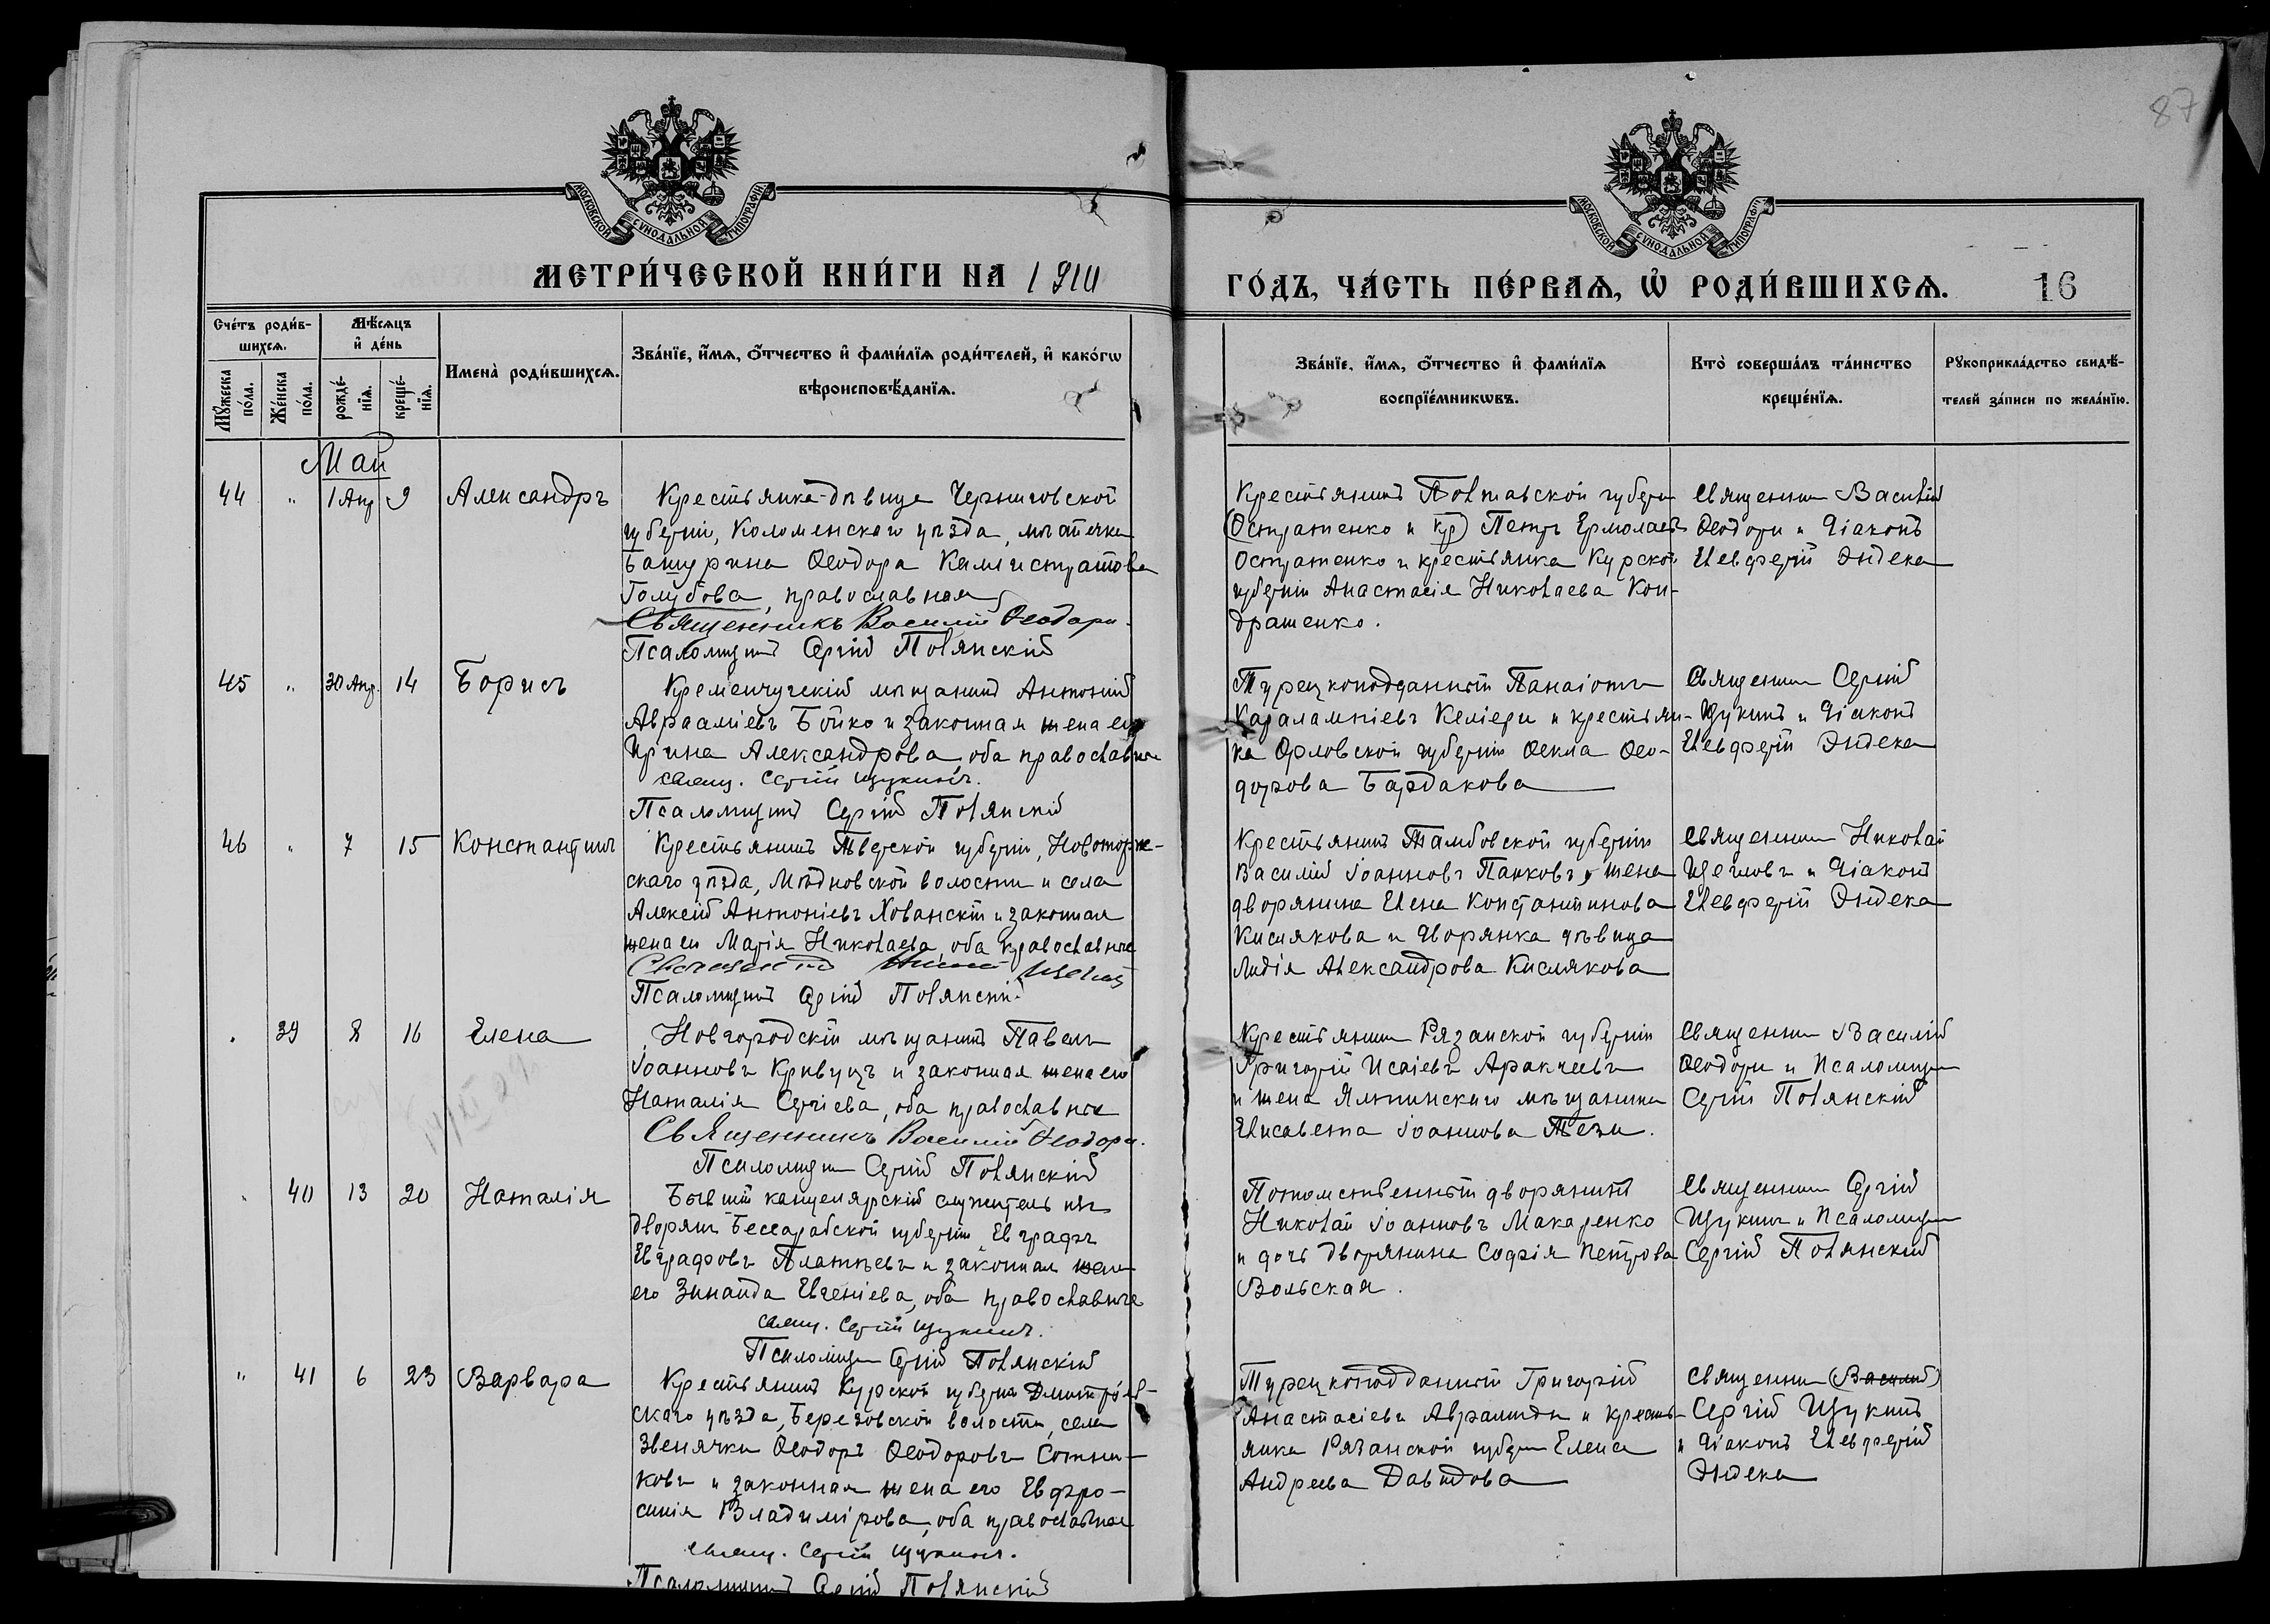 87
МОСКОВСКОЙ СѴНОДАЛЬНОЙ ТИПОГРАФІИ
МОСКОВСКОЙ СѴНОДАЛЬНОЙ ТИПОГРАФІИ
МЕТРИ́ЧЕСКОЙ КНИ́ГИ НА 1910
ГО́ДЪ, ЧА́СТЬ ПЕ́РВАѦ, Ѡ҆ РОДИ́ВШИХСѦ. 16
Сче́тъ роди́в-
шихсѧ.
Мѣ́сѧцъ
и҆ де́нь
Мꙋ́жеска
по́ла.
Же́нска
по́ла.
рожде́-
нїѧ.
креще́-
нїѧ.
Имена̀ роди́вшихсѧ.
Зва́нїе, и҆́мѧ, ѻ҆́тчество и҆ фами́лїѧ роди́телей, и҆ како́гѡ
вѣроисповѣ́данїѧ.
Зва́нїе, и҆́мѧ, ѻ҆́тчество и҆ фами́лїѧ
воспрїе́мникѡвъ.
Кто̀ соверша́лъ та́инство
креще́нїѧ.
Рꙋкоприкла́дство свидѣ́-
телей за́писи по жела́нїю.
Май
44 " 1 Апр 9 Александръ
Крестьянка-дѣвица Черниговской
губерніи, Коломенскаго уѣзда, мѣстечка
Батурина Ѳеодора Каллистратова
Голубова, православная
Священникъ Василій Ѳеодори.
Псаломщикъ Сергій Полянскій
Крестьянинъ Полтавской губерн
(Остратенко и кр) Петръ Ермолаевъ
Остратенко и крестьянка Курской
губерніи Анастасія Николаева Кон-
драшенко.
Священник Василій
Ѳеодори и Діаконъ
Елевферій Эндека
45 " 30 Апр. 14 Борисъ
Кременчугскій мѣщанинъ Антоній
Авраамиевъ Бойко и законная жена его
Ирина Александрова, оба православные
свящ. Сергій Щукинъ.
Псаломщикъ Сергій Полянскій
Турецкоподданный Панаіотъ
Харалампіевъ Келіери и крестьян-
ка Орловской губерніи Ѳекла Ѳео-
дорова Бардакова
Священник Сергій
Щукинъ и Діаконъ
Елевферій Эндека
46 " 7 15 Константинъ
Крестьянинъ Тверской губерніи, Новоторж-
скаго уѣзда, Мѣдновской волости и села
Алексѣй Антоніевъ Хованскій и законная
жена его Марія Николаева, оба православные
Священник
Псаломщикъ Сергій Полянскій
Крестьянинъ Тамбовской губерніи
Василій Іоанновъ Панковъ, жена
дворянина Елена Константинова
Кислякова и Дворянка дѣвица
Лидія Александрова Кислякова
Священник Николай
Щегловъ и Діаконъ
Елевферій Эндека
" 39 8 16 Елена
Новгородскій мѣщанинъ Павелъ
Іоанновъ Кривуцъ и законная жена его
Наталія Сергіева, оба православные
Священникъ Василій Ѳеодори.
Псаломщик Сергій Полянскій
Крестьянин Рязанской губерніи
Григорій Исаіевъ Аракчеевъ
и жена Ялтинскаго мѣщанина
Елисавета Іоаннова Тези.
Священник Василій
Ѳеодори и Псаломщик
Сергій Полянскій
" 40 13 20 Наталія
Бывшій канцелярскій служитель изъ
дворянъ Бессарабской губерніи Евграфъ
Евграфовъ Платѣевъ и законная жена
его Зинаида Евгеніева, оба православные
свящ. Сергій Щукинъ.
Псаломщик Сергій Полянскій
Потомственный дворянинъ
Николай Іоанновъ Макаренко
и дочь дворянина Софія Петрова
Вольская.
Священник Сергій
Щукинъ и Псаломщик
Сергій Полянскій
" 41 6 23 Варвара
Крестьянинъ Курской губерніи Дмитріев-
скаго уѣзда, Березовской волости, села
Звенячки Ѳеодоръ Ѳеодоровъ Сотни-
ковъ и законная жена его Евфро-
синія Владимірова, оба православные
свящ. Сергій Щукинъ.
Псаломщикъ Сергій Полянскій
Турецкоподданный Григорій
Анастасіевъ Аврамиди и кресть-
янка Рязанской губерн Елена
Андреева Давидова
Священник (Василій)
Сергій Щукинъ
и Діаконъ Елевферій
Эндека